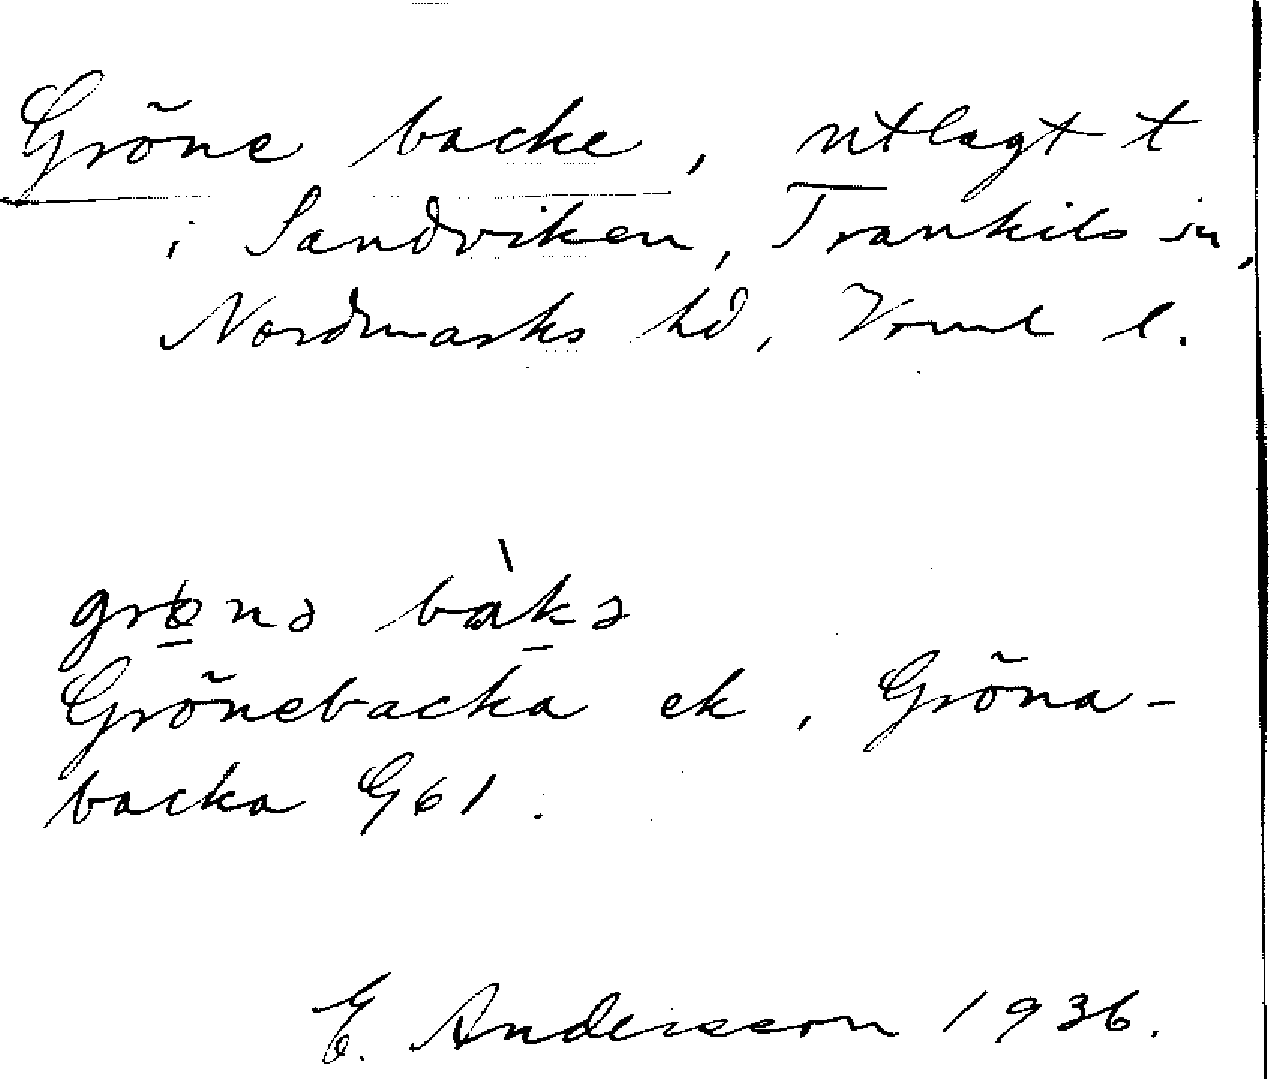 Gröne backe, utlagt t
i Sandviken, Trankils sn,
Nordmarks hd, Vrml l.
grønə bàkə
Grönebacka ek, Gröna-
backa G61.
E. Andersson 1936.